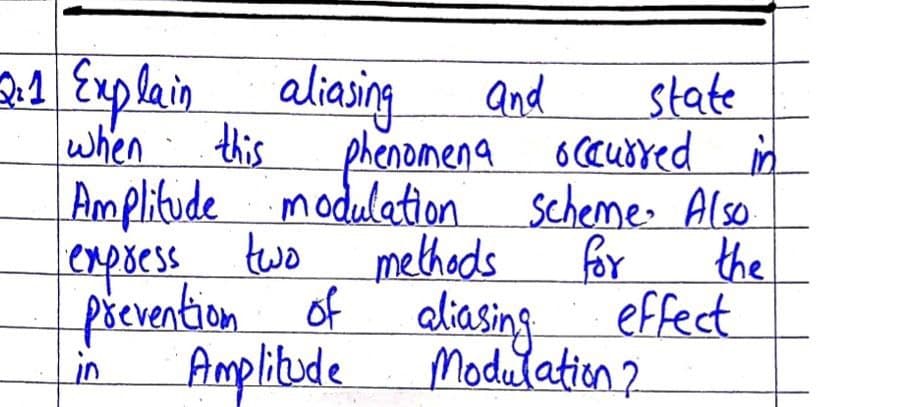 Q:1 Explain aliasing and state
when this phenomena occurred in
Amplitude modulation scheme. Also
express two methods for the
prevention of aliasing effect
in Amplitude Modulation?